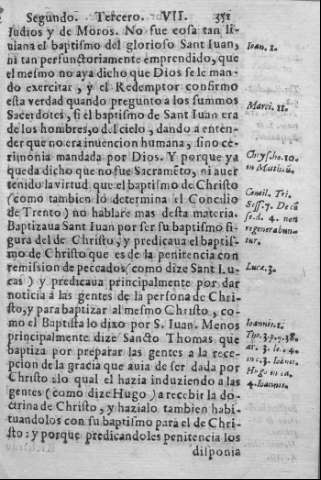 Segundo. Tercero. VII. 351
Iudios y de Moros. No fue cosa tan li-
uiana el baptismo del glorioso Sant Iuan,
ni tan perfunctoriamente emprendido, que
el mesmo no aya dicho que Dios se le man-
do exercitar, y el Redemptor confirmo
esta verdad quando pregunto a los summos
Sacerdotes, si el baptismo de Sant Iuan era
de los hombres, o d.l cielo, dando a enten-
der que no era inuencion humana, sino ce-
rimonia mandada por Dios. Y porque ya
queda dicho que no fue Sacramẽto, ni auer
tenido la virtud que el baptismo de Christo
(como tambien lo determina el Concilio
de Trento) no hablare mas desta materia.
Baptizaua Sant Iuan por ser su baptismo fi-
gura del de Christo, y predicaua el baptis-
mo de Christo que es de la penitencia con
remission de peccados (como dize Sant Lu-
cas) y predicaua principalmente por dar
noticia a las gentes de la persona de Chri-
sto, y para baptizar al mesmo Christo, co-
mo el Baptista lo dixo por S. Iuan. Menos
principalmente dize Sancto Thomas que
baptiza por preparar las gentes a la rece-
pcion de la gracia que auia de ser dada por
Christo: lo qual el hazia induziendo a las
gentes (como dize Hugo) a recebir la do-
ctrina de Christo, y hazialo tambien habi-
tuandolos con su baptismo para el de Chri-
sto: y porque predicandoles penitencia los
disponia
Ioan. 1.
Marci. 11.
Chrysost. 10.
in Matthæū.
Concil. Tri.
Sess. 7. De cā
4. non
regenerabun-
tur.
Lucæ. 3.
Ioannis. 1.
Tho. 3. p. q. 38.
ar. 3. 4.
in c. 3. Ioann.
Hugo in ca.
4. Ioannis.